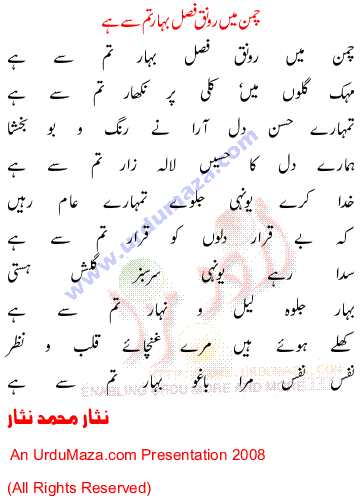 چمن میں رونق فصل بہار تم سے ہے
چمن میں رونق فصل بہار تم سے ہے
مہک گلوں میں کلی پر نکھار تم سے ہے
تمہارے حسن دل آرا نے رنگ و بو بخشا
ہمارے دل کا حسیں لالہ زار تم سے ہے
خدا کرے یونہی جلوے تمہارے عام رہیں
کہ بے قرار دلوں کو قرار تم سے ہے
سدا رہے یونہی سرسبز گلشن ہستی
بہار جلوہ لیل و نہار تم سے ہے
کھلے ہوئے ہیں مرے غنچائے قلب و نظر
نفس نفس مرا باغو بہار تم سے ہے
نثار محمد نثار
An UrduMaza.com Presentation 2008
(All Rights Reserved)
www.urdumaza.com
HTTP://WWW.URDUMAZA.COM
ENABLING URDU MORE AND MORE